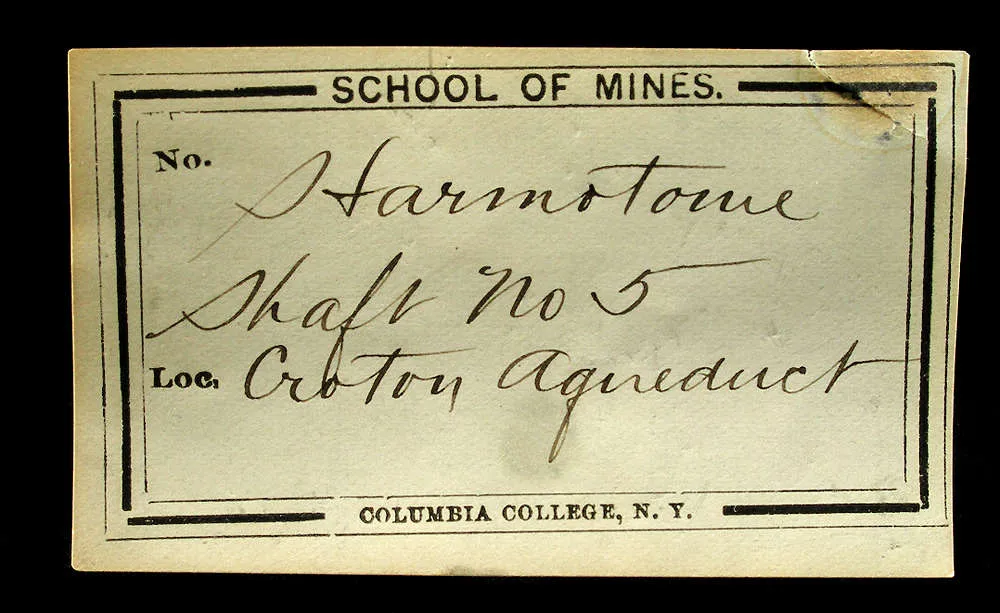 SCHOOL OF MINES.
No.
Harmotome
Shaft No 5
Loc. Croton Aqueduct
COLUMBIA COLLEGE, N. Y.